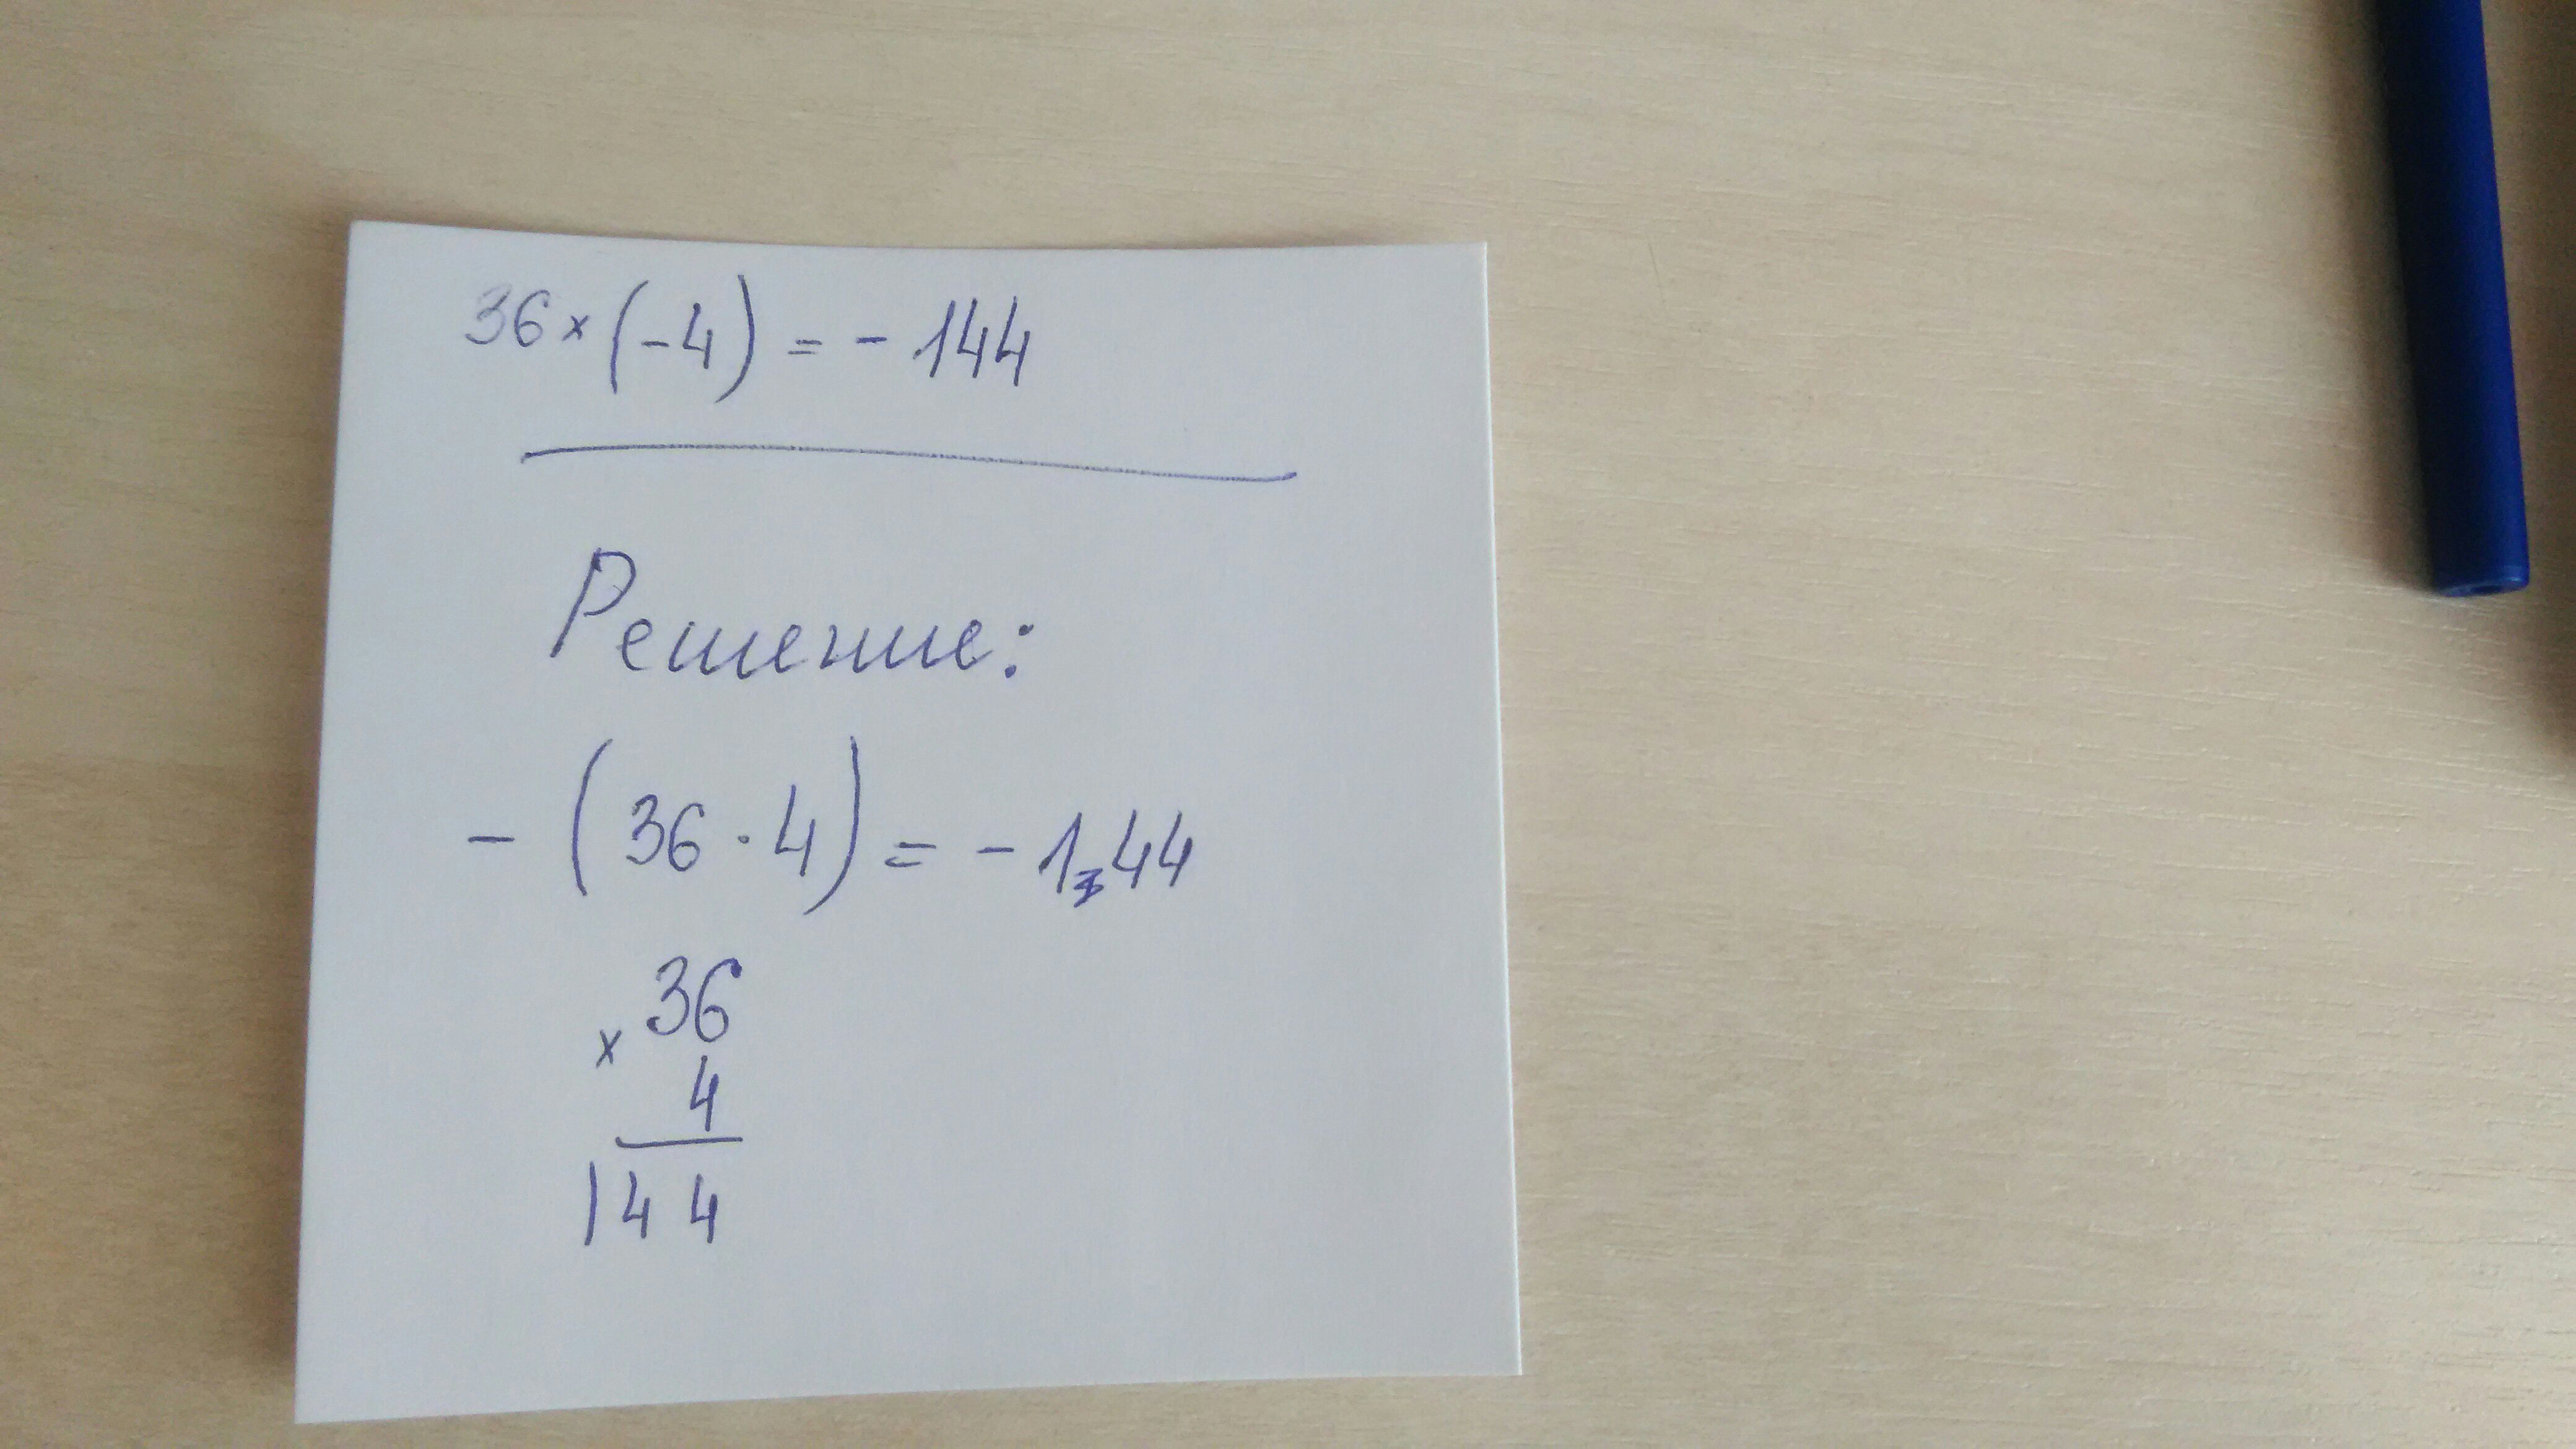 36 × (-4) = - 144
Решение:
- (36 · 4) = - 144
× 36
4
144